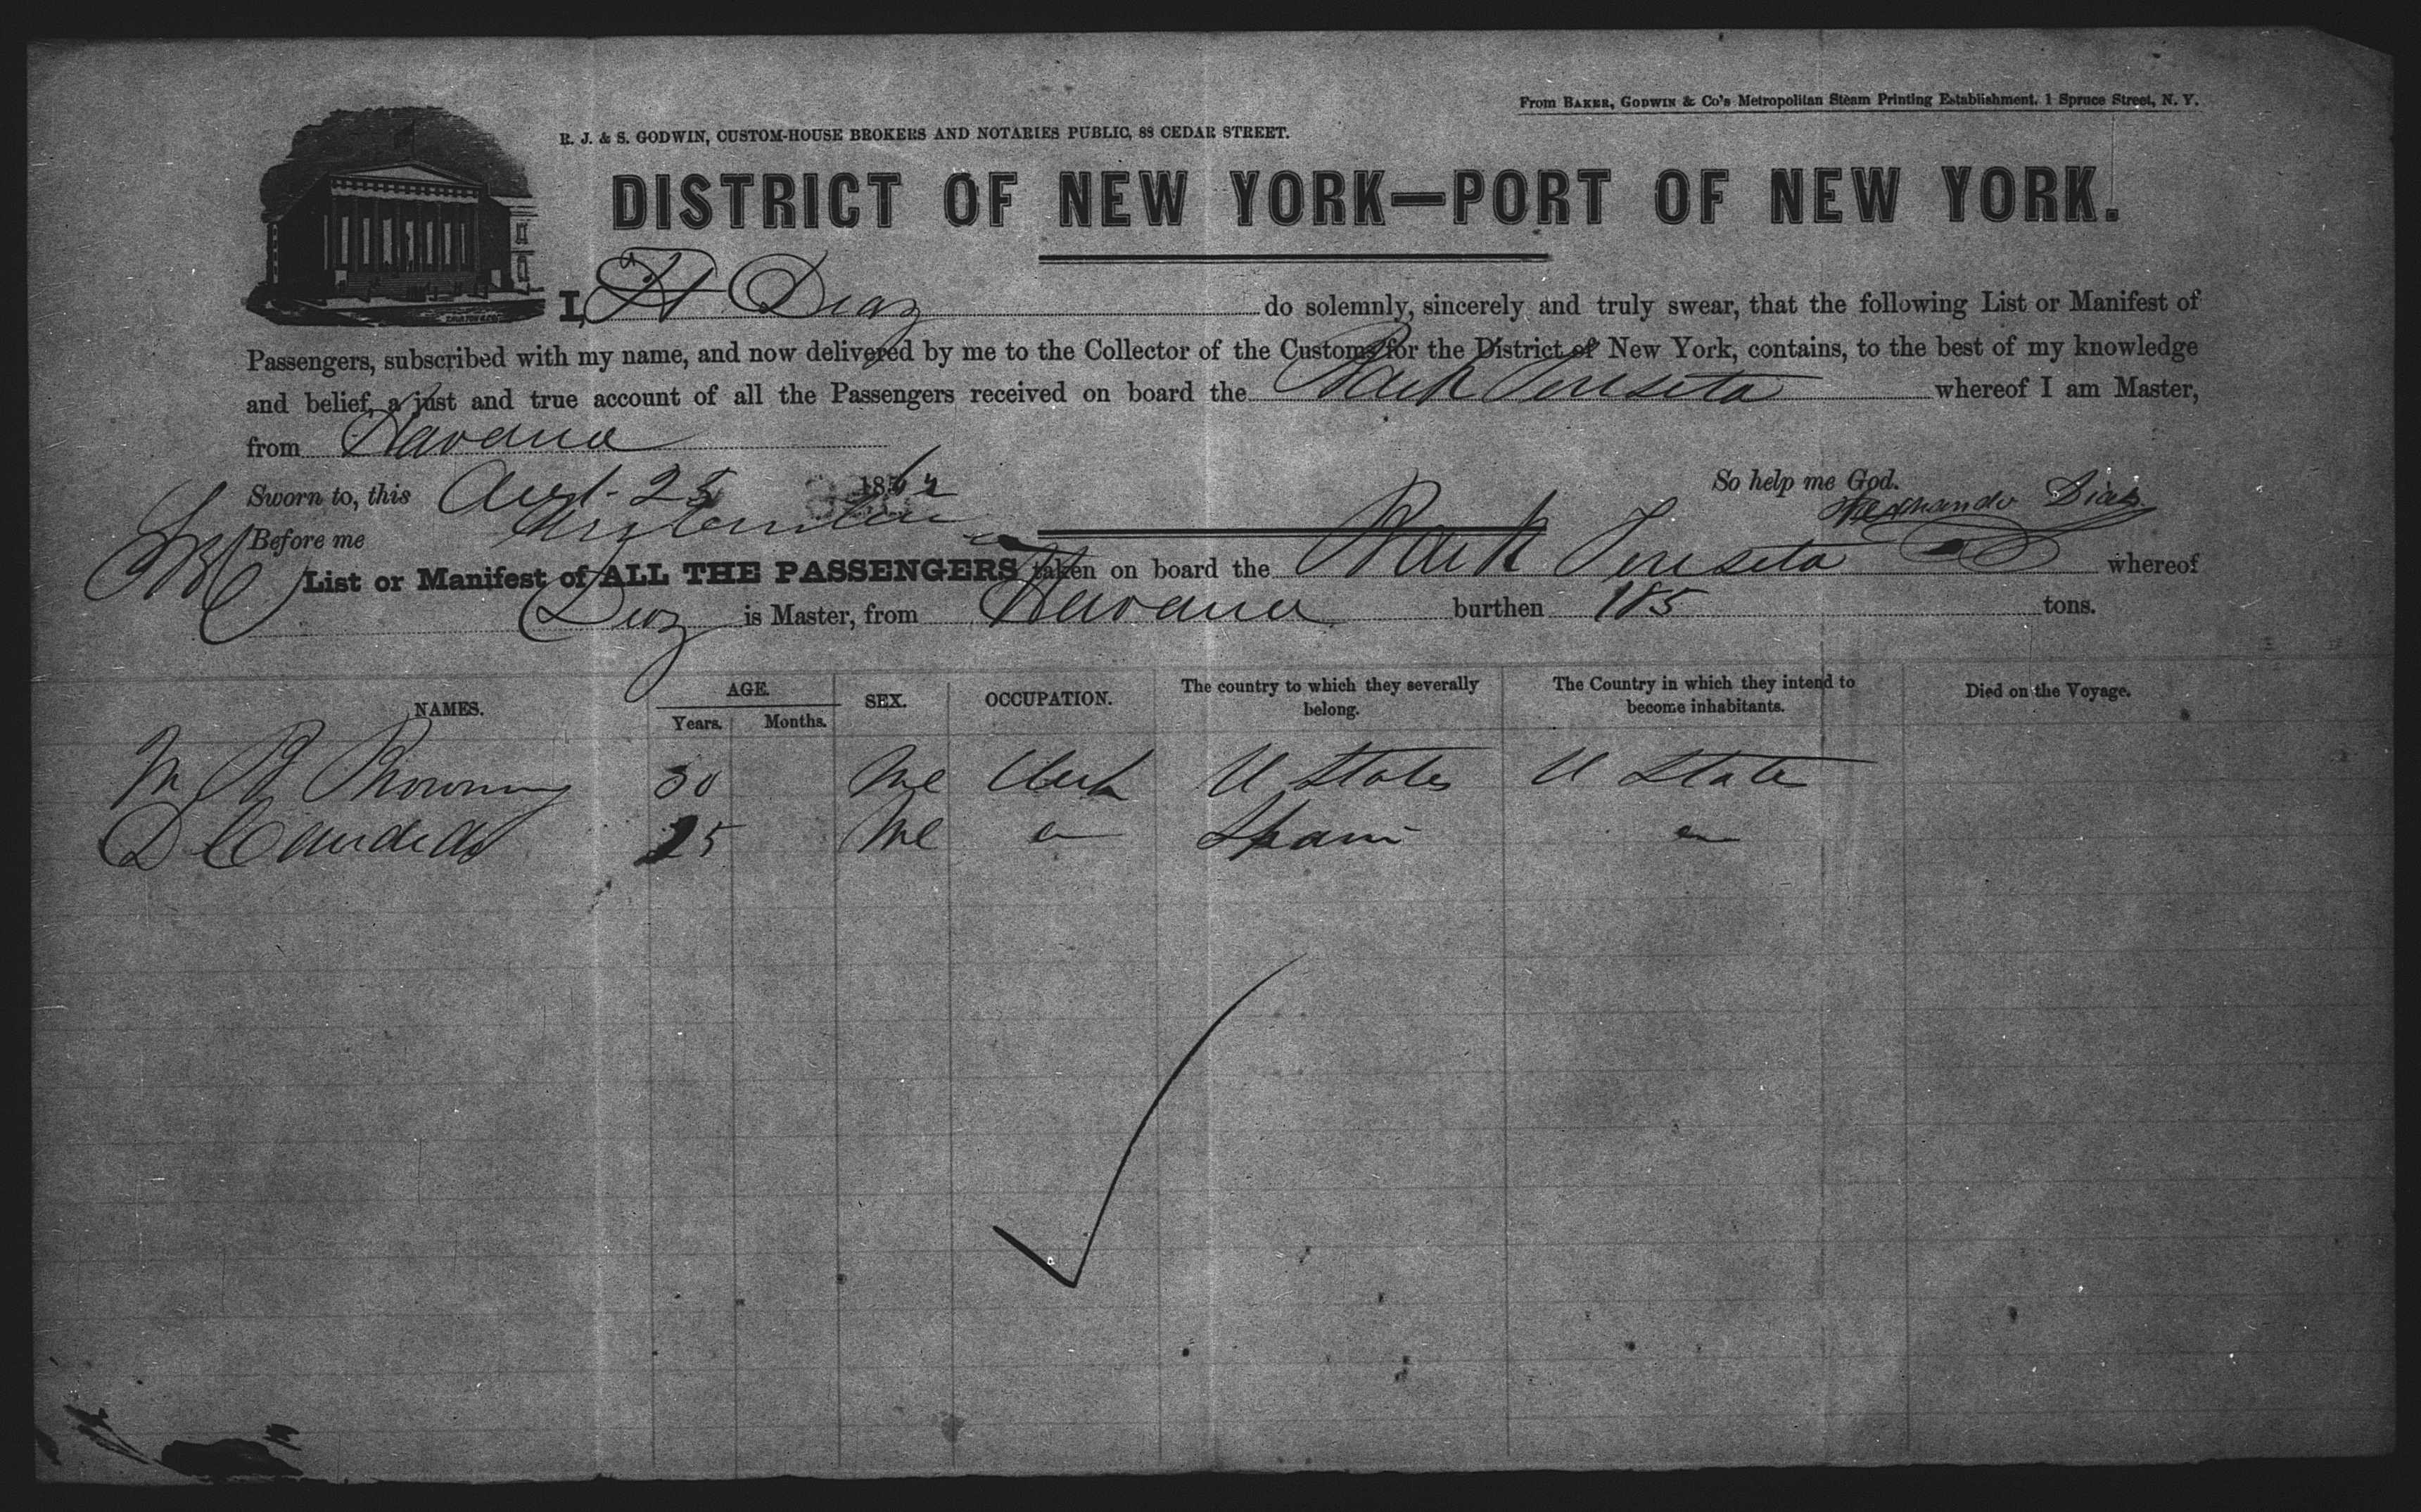 From BAKER, GODWIN & Co's Metropolitan Steam Printing Establishment, 1 Spruce Street, N. Y.
R. J. & S. GODWIN, CUSTOM-HOUSE BROKERS AND NOTARIES PUBLIC, 88 CEDAR STREET.
DISTRICT OF NEW YORK—PORT OF NEW YORK.
I, Diaz do solemnly, sincerely and truly swear, that the following List or Manifest of
Passengers, subscribed with my name, and now delivered by me to the Collector of the Customs for the District of New York, contains, to the best of my knowledge
and belief, a just and true account of all the Passengers received on board the Bark Teresita whereof I am Master,
from Havana
Sworn to, this Augt. 25 1862 So help me God.
Before me Diaz
List or Manifest of ALL THE PASSENGERS taken on board the Bark Teresita whereof
Diaz is Master, from Havana burthen 185 tons.
NAMES. AGE. Years. Months. SEX. OCCUPATION. The country to which they severally belong. The Country in which they intend to become inhabitants. Died on the Voyage.
M Browning 30 Me Clerk U States U State
D 25 Me " Spain "